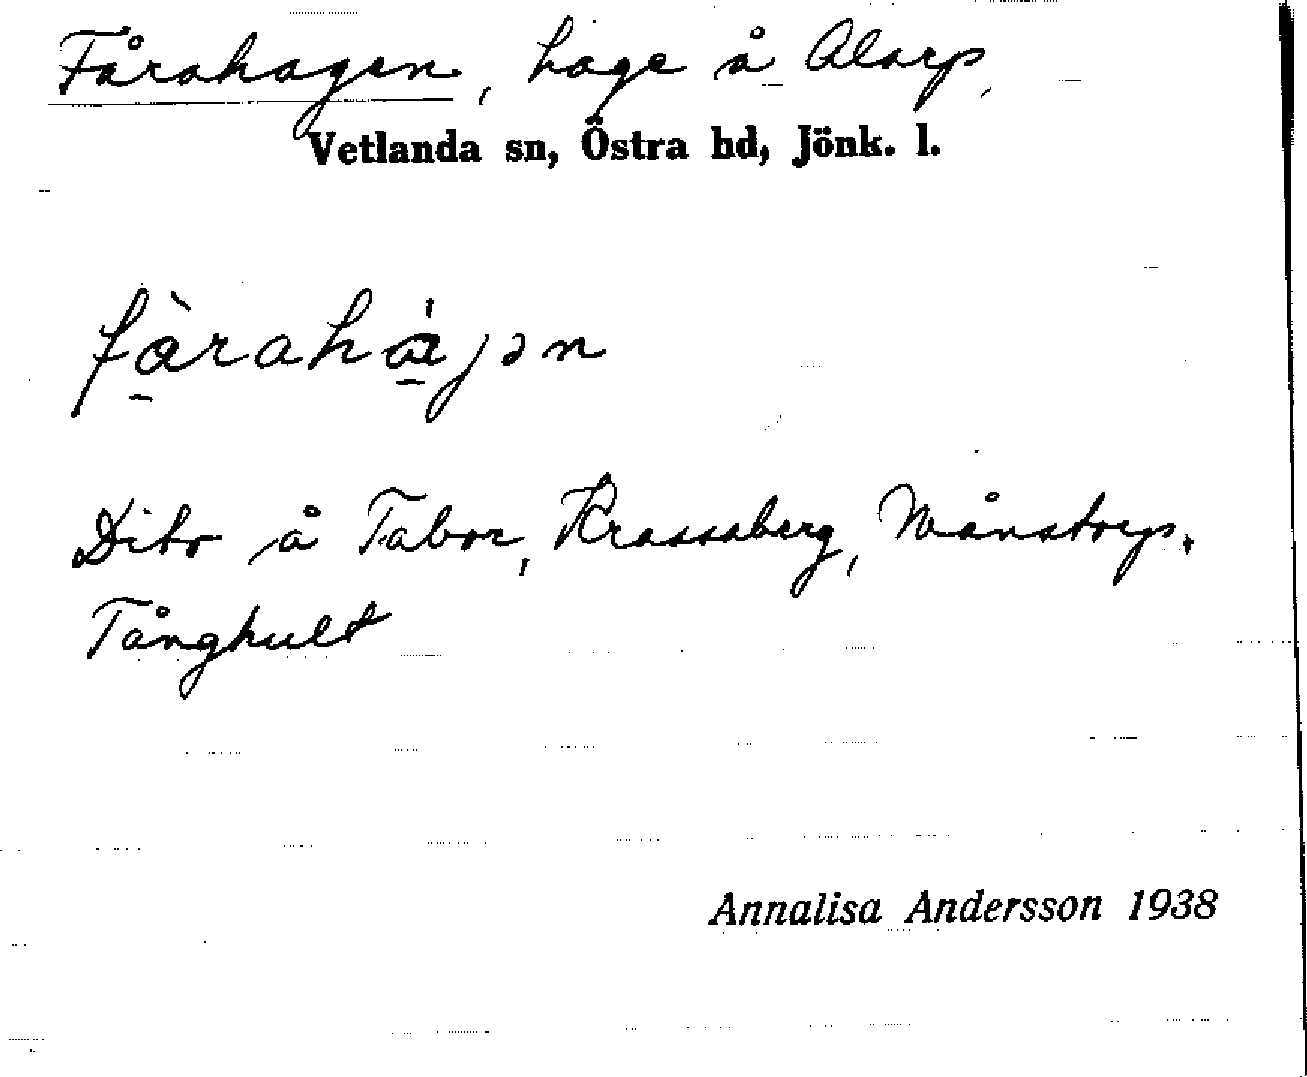 Fårahagen, hage å Alarp,
Vetlanda sn, Östra hd, Jönk. l.
Dito å Tabor, Krassaberg, Månstorp,
Tånghult
Annalisa Andersson 1938